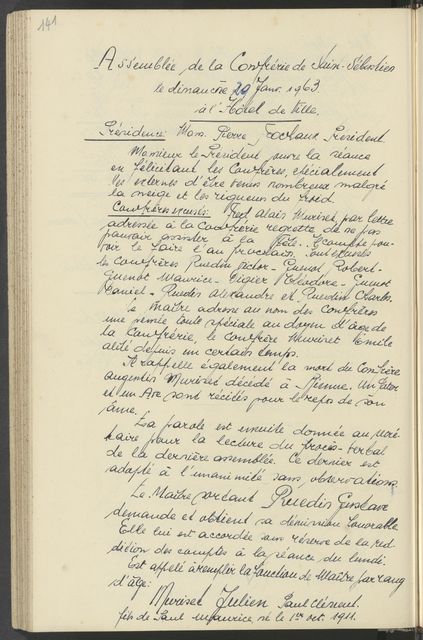 141
Assemblée de la Confrérie de Saint-Sébastien
le dimanche 20 Janv. 1963
à l'Hôtel de Ville.
Présidence: Mons. Pierre Frochaux Président.
Monsieur le Président ouvre la séance
en félicitant les Confrères, spécialement
les externes d'être venus nombreux malgré
la neige et les rigueurs du froid.
Confrères excusés: Rvd. Alais Muriset, par lettre
adressée à la Confrérie regrette de ne pas
pouvoir assister à la Fête. Il compte pou-
voir le faire l'an prochain. Sont excusés
les Confrères Ruedin Victor - Guenot Robert -
Guenot Maurice - Digier Théodore - Guenot
Daniel - Ruedin Alexandre et Ruedin Charles.
Le Maître adresse au nom des Confrères
une pensée toute spéciale au doyen d'âge de
la Confrérie, le Confrère Muriset Emile
alité depuis un certain temps.
Il rappelle également la mort du Confrère
Augustin Muriset décédé à Bienne. Un Pater
et un Ave sont récités pour le repos de son
âme.
La parole est ensuite donnée au secré-
taire pour la lecture du procès-verbal
de la dernière assemblée. Ce dernier est
adopté à l'unanimité sans observations.
Le Maître sortant Ruedin Gustave
demande et obtient sa démission honorable
Elle lui est accordée sous réserve de la red-
dition des comptes à la séance du lundi.
Est appelé à remplir la fonction de Maître par rang
d'âge:
Muriset Julien Paul Clément.
fils de Paul Maurice né le 1er oct. 1911.